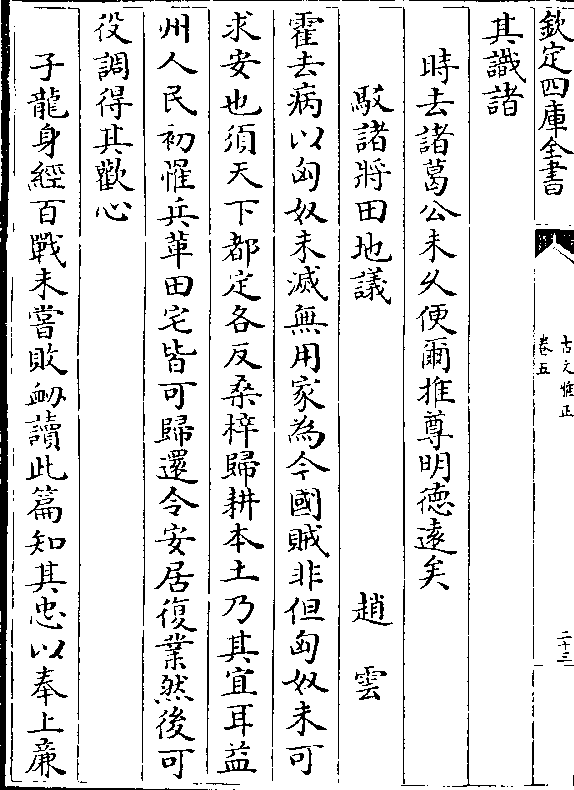 欽定四庫全書
古文雅正
卷五
二十三
其識諸
時去諸葛公未久便爾推尊明德逺矣
駁諸將田地議
趙雲
霍去病以匈奴未滅無用家為今國賊非但匈奴未可
求安也須天下都定各反桑梓歸耕本土乃其宜耳益
州人民初懼兵革田宅皆可歸還令安居復業然後可
役調得其歡心
子龍身經百戰未嘗敗衂讀此篇知其忠以奉上亷